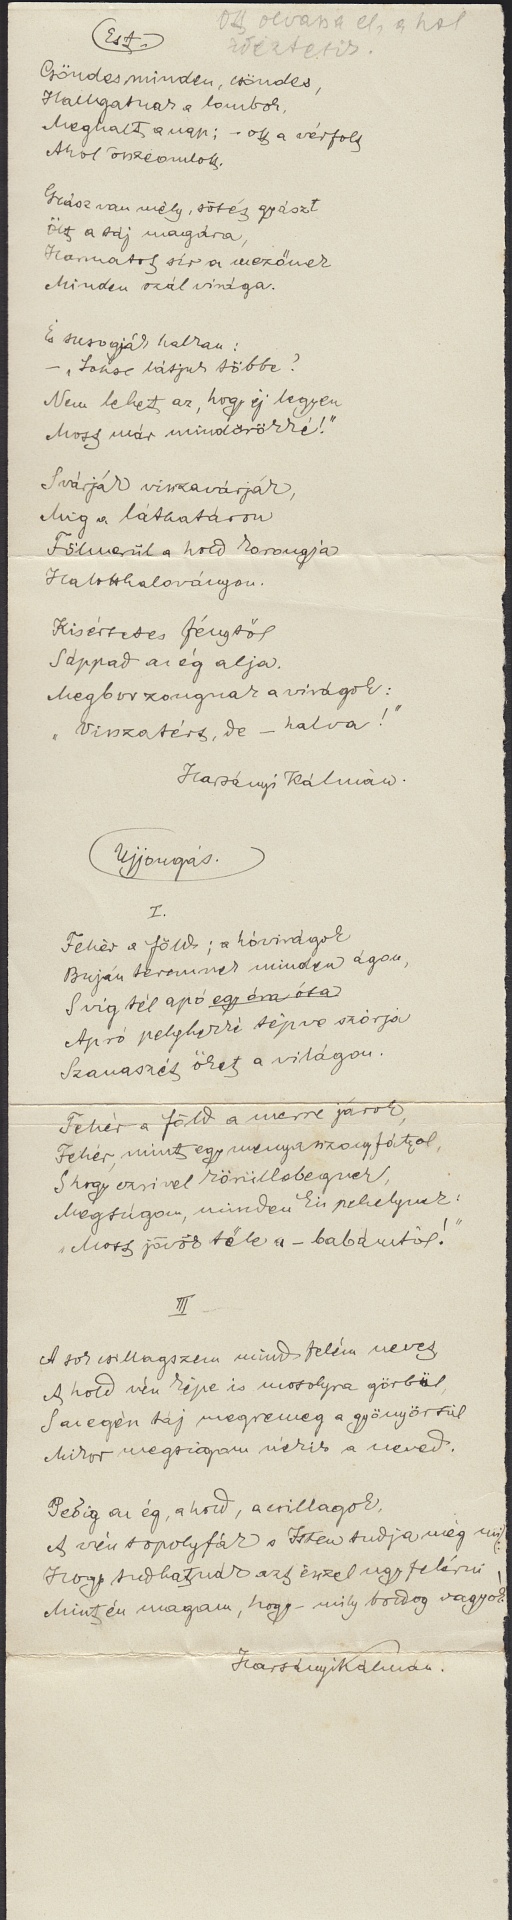 Ott olvassa el, a hol
Est.
Csöndes minden, csöndes,
Hallgatnak a lombok.
Meghalt a nap; – ott a vérfolt
Ahol összeomlott.
Gyász van mély, sötét gyászt
Ölt a táj magára,
Harmatot sír a mezőnek
Minden szál virága.
És susogják halkan:
– „Sohse látjuk többé?
Nem lehet az, hogy éj legyen
Most már mindörökké!"
S várják visszavárják,
Míg a láthatáron
Fölmerül a hold korongja
Halotthaloványon.
Kisértetes fénytől
Sáppad az ég alja.
Megborzongnak a virágok:
„Visszatért, de – halva!"
Harsányi Kálmán.
Ujjongás.
I.
Fehér a föld; a hóvirágok
Buján teremnek minden ágon,
S víg tél apó egy óra óta
Apró pelyhekké tépve szórja
Szanaszét őket a világon.
Fehér a föld a merre járok,
Fehér, mint egy menyasszonyfátyol,
S hogy ezrivel körüllebegnek,
Megsúgom, minden kis pehelynek:
„Most jövök tőle a – babámtól!"
III
A sok csillagszem mind felém nevet
A hold vén képe is mosolyra görbül,
S az egén táj megremeg a gyönyörtül
Mikor megsúgom nékik a neved.
Pedig az ég, a hold, a csillagok,
A vén topolyfák s Isten tudja még mi,
Hogy tudhatnák azt ésszel ugy felérni
Mint én magam, hogy – mily boldog vagyok!
Harsányi Kálmán.